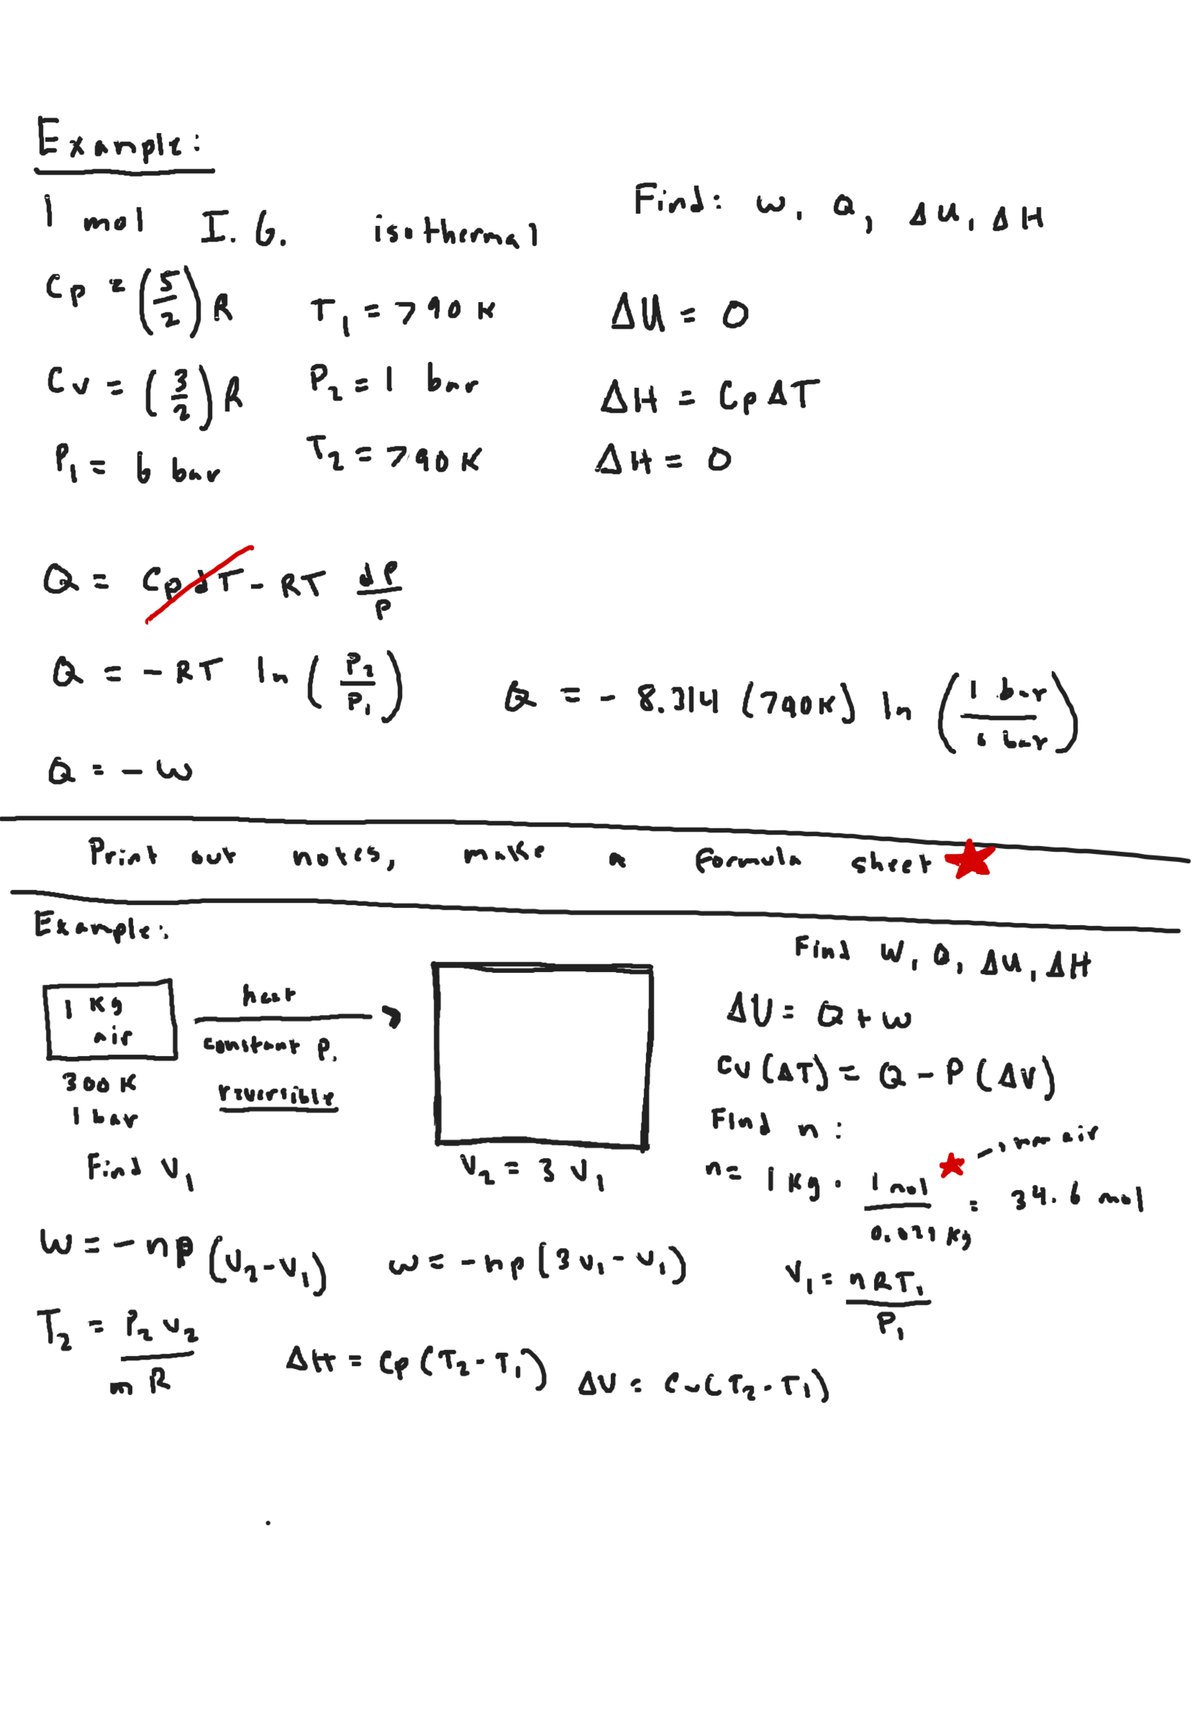 Example:
1 mol I.G. isothermal
Find: W, Q, ΔU, ΔH
Cp = (5/2) R
T1 = 790 K
ΔU = 0
Cv = (3/2) R
P2 = 1 bar
ΔH = Cp ΔT
P1 = 6 bar
T2 = 790 K
ΔH = 0
Q = Cp dT - RT dP/P
Q = - RT ln (P2/P1)
Q = - 8.314 (790K) ln (1 bar/6 bar)
Q = - W
Print out notes, make a formula sheet
Example:
1 Kg
air
300 K
1 bar
Find V1
heat
constant P,
reversible
V2 = 3 V1
Find W, Q, ΔU, ΔH
ΔU = Q + W
Cv (ΔT) = Q - P (ΔV)
Find n:
n = 1 Kg · 1 mol/0.029 Kg = 34.6 mol
air
W = - nP (V2 - V1)
W = - nP (3V1 - V1)
V1 = nRT1/P1
T2 = P2 V2/n R
ΔH = Cp (T2 - T1)
ΔU = Cv (T2 - T1)